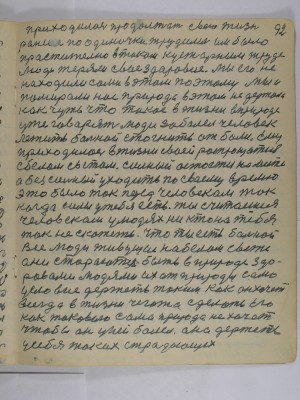 92
приходилося продолжат свою жизн
ранее по одиночки трудится им было
простительно в таком кустарным труде
люди теряли своё здоровие. Мы его не
находили сами в этом поэтому мы и
помирали нас природа в этом не держала
как чуть что такое в жизни в природе
уже говорят люди заболел человек
лежить больной стогнить от боли. Ему
приходилося в жизни своей распрощатся
с белом светом. сильный остаются на месте
а без сильный уходить по своему время
это было так перед человеком так
когда силы у тебя есть. ты считаешся
человеком у людях ни кто на тебя
так не скажеть. что ты есть больной
Все люди живущие на белом свете
они стараются быть в природе здо-
ровами людями их эта природа само
цело вие держеть таким как он хочет
всегда в жизни чегота сделать его
как такового сама природа не хочет
чтобы он у ней болел. она держеть
у себя таких страдающих